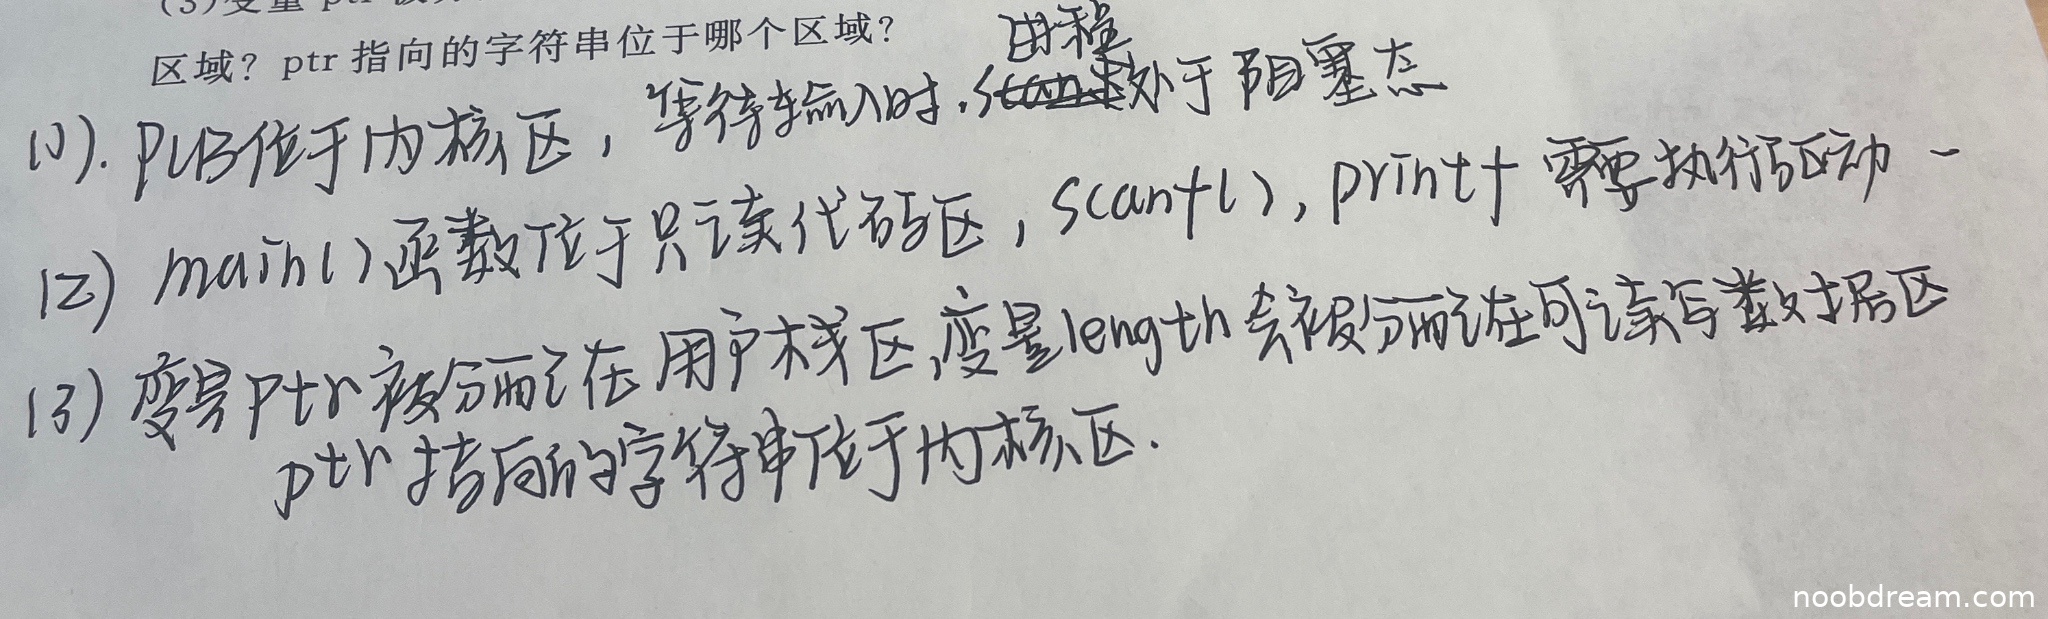 (3)变量 ptr 被分
区域？ptr 指向的字符串位于哪个区域？
(1). PCB位于内核区，等待输入时，进程处于阻塞态
(2) main()函数位于只读代码区，scanf()，printf 需要执行驱动-
(3) 变量ptr被分配在用户栈区，变量length会被分配在可读写数据区
ptr指向的字符串位于内核区.
noobdream.com